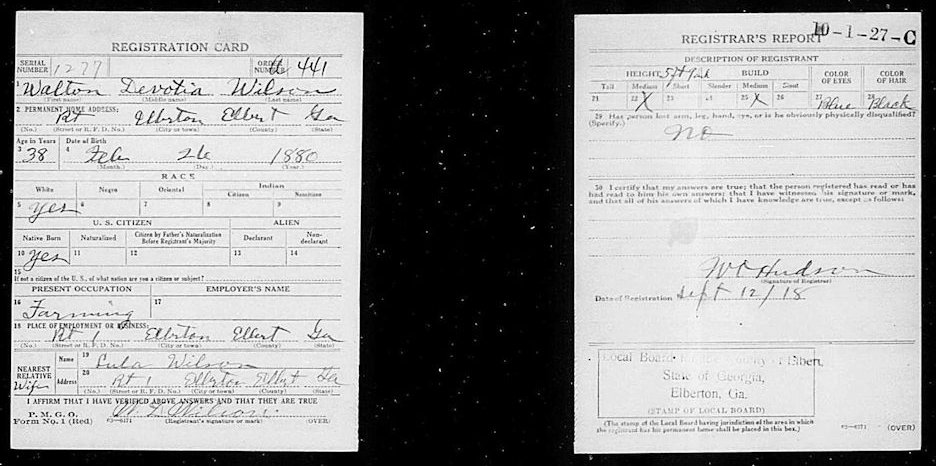 REGISTRATION CARD
SERIAL NUMBER 1277 ORDER NUMBER 441
1 Walton Devotia Wilson
(First name) (Middle name) (Last name)
2 PERMANENT HOME ADDRESS:
Rt Elberton Elbert Ga
(No.) (Street or R. F. D. No.) (City or town) (County) (State)
Age in Years Date of Birth
3 38 4 Feb 26 1880
(Month.) (Day.) (Year.)
RACE
White Negro Oriental Indian
Citizen Noncitizen
5 Yes 6 7 8 9
U. S. CITIZEN ALIEN
Native Born Naturalized Citizen by Father's Naturalization Before Registrant's Majority Declarant Non-declarant
10 Yes 11 12 13 14
15
If not a citizen of the U. S., of what nation are you a citizen or subject?
PRESENT OCCUPATION EMPLOYER'S NAME
16 Farming 17
18 PLACE OF EMPLOYMENT OR BUSINESS:
Rt 1 Elberton Elbert Ga
(No.) (Street or R. F. D. No.) (City or town) (County) (State)
NEAREST RELATIVE Wife
Name 19 Lula Wilson
Address 20 Rt 1 Elberton Elbert Ga
(No.) (Street or R. F. D. No.) (City or town) (County) (State)
I AFFIRM THAT I HAVE VERIFIED ABOVE ANSWERS AND THAT THEY ARE TRUE
P. M. G. O.
Form No. 1 (Red) 03-6171 W. D. Wilson (Registrant's signature or mark) (OVER)
REGISTRAR'S REPORT 10-1-27-C
DESCRIPTION OF REGISTRANT
HEIGHT BUILD COLOR OF EYES COLOR OF HAIR
Tall Medium Short Slender Medium Stout
21 22 X 23 24 25 X 26 27 Blue 28 Black
29 Has person lost arm, leg, hand, eye, or is he obviously physically disqualified?
(Specify.) No
30 I certify that my answers are true; that the person registered has read or has
had read to him his own answers; that I have witnessed his signature or mark,
and that all of his answers of which I have knowledge are true, except as follows:
W C Hudson
(Signature of Registrar)
Date of Registration Sept 12/18
Local Board County of Elbert,
State of Georgia,
Elberton, Ga.
(STAMP OF LOCAL BOARD)
(The stamp of the Local Board having jurisdiction of the area in which
the registrant has his permanent home shall be placed in this box.)
03-6171 (OVER)